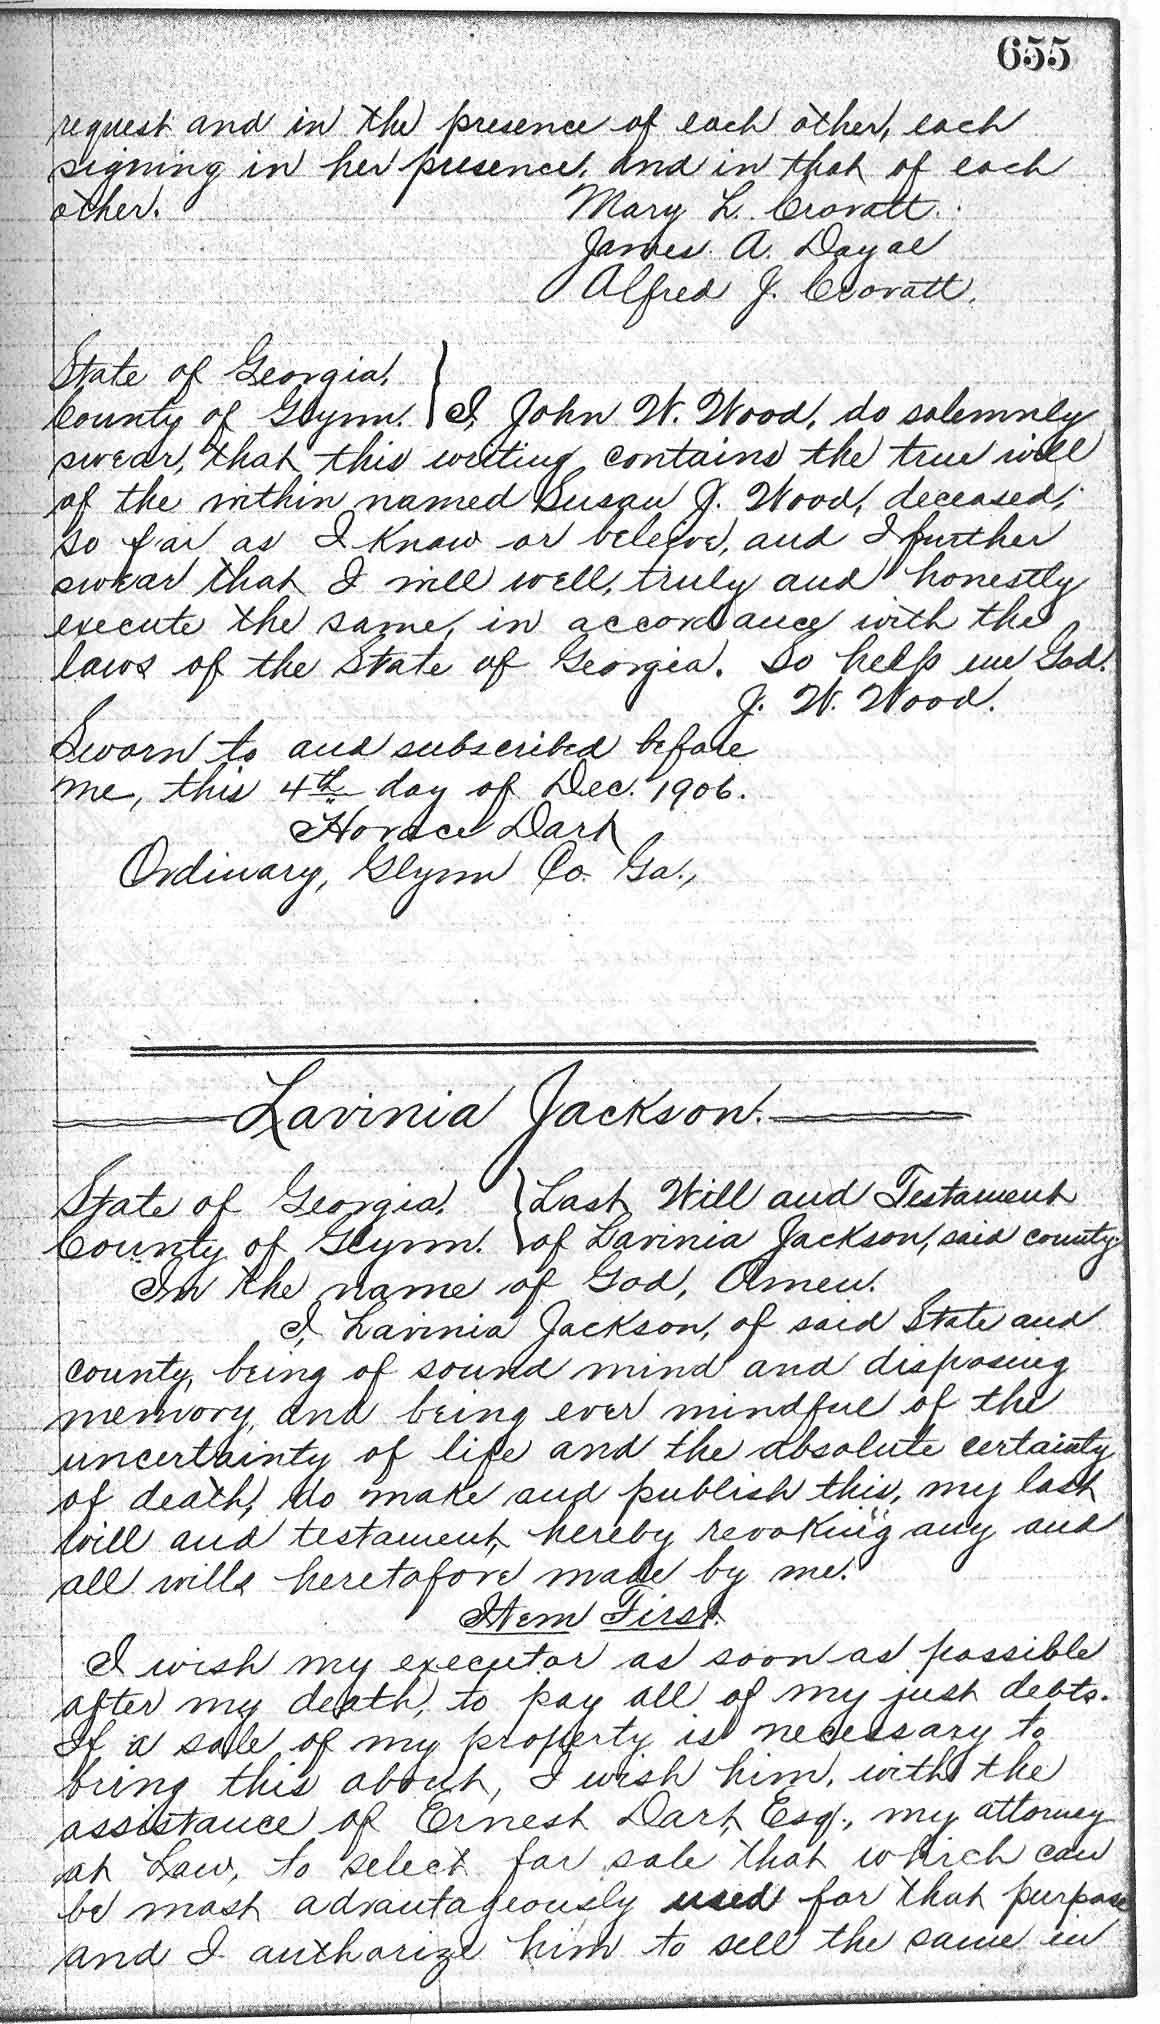 655
request and in the presence of each other, each
signing in her presence, and in that of each
other.
Mary L. Crovatt.
James A. Dayal
Alfred J. Crovatt.
State of Georgia.
County of Glynn. } I, John W. Wood, do solemnly
swear, that this writing contains the true will
of the within named Susan J. Wood, deceased,
so far as I know or beleive, and I further
swear that I will well, truly and honestly
execute the same, in accordance with the
laws of the State of Georgia. So help me God.
J. W. Wood.
Sworn to and subscribed before
me, this 4th day of Dec. 1906.
Horace Dart
Ordinary, Glynn Co. Ga.,
Lavinia Jackson.
State of Georgia. } Last Will and Testament
County of Glynn. } of Lavinia Jackson, said county.
In the name of God, Amen.
I, Lavinia Jackson, of said State and
county, being of sound mind and disposing
memory, and being ever mindful of the
uncertainty of life and the absolute certainty
of death, do make and publish this, my last
will and testament, hereby revoking any and
all wills heretofore made by me.
Item First.
I wish my executor as soon as possible
after my death, to pay all of my just debts.
If a sale of my property is necessary to
bring this about, I wish him, with the
assistance of Ernest Dart, Esq., my attorney
at Law, to select for sale that which can
be most advantageously used for that purpose
and I authorize him to sell the same in